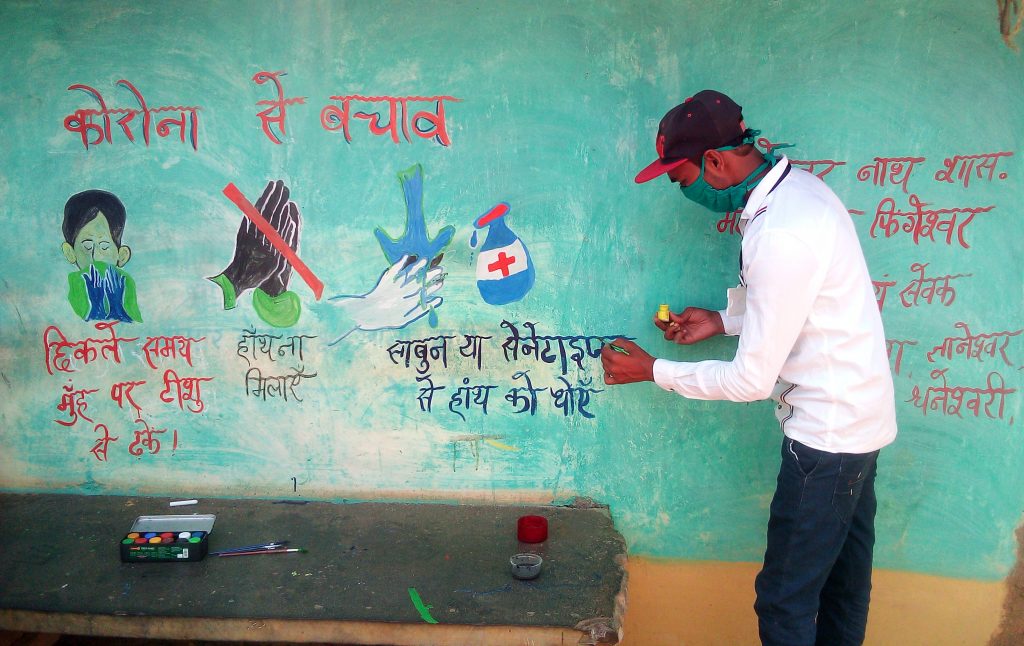 कोरोना से बचाव
छिकते समय
मुँह पर टीशु
से ढकें।
हाँथ ना
मिलाएँ
साबुन या सेनेटाइजर
से हांथ को धोएँ
नाथ शास.
फिंगेश्वर
सेवक
ज्ञानेश्वर,
धनेश्वरी,